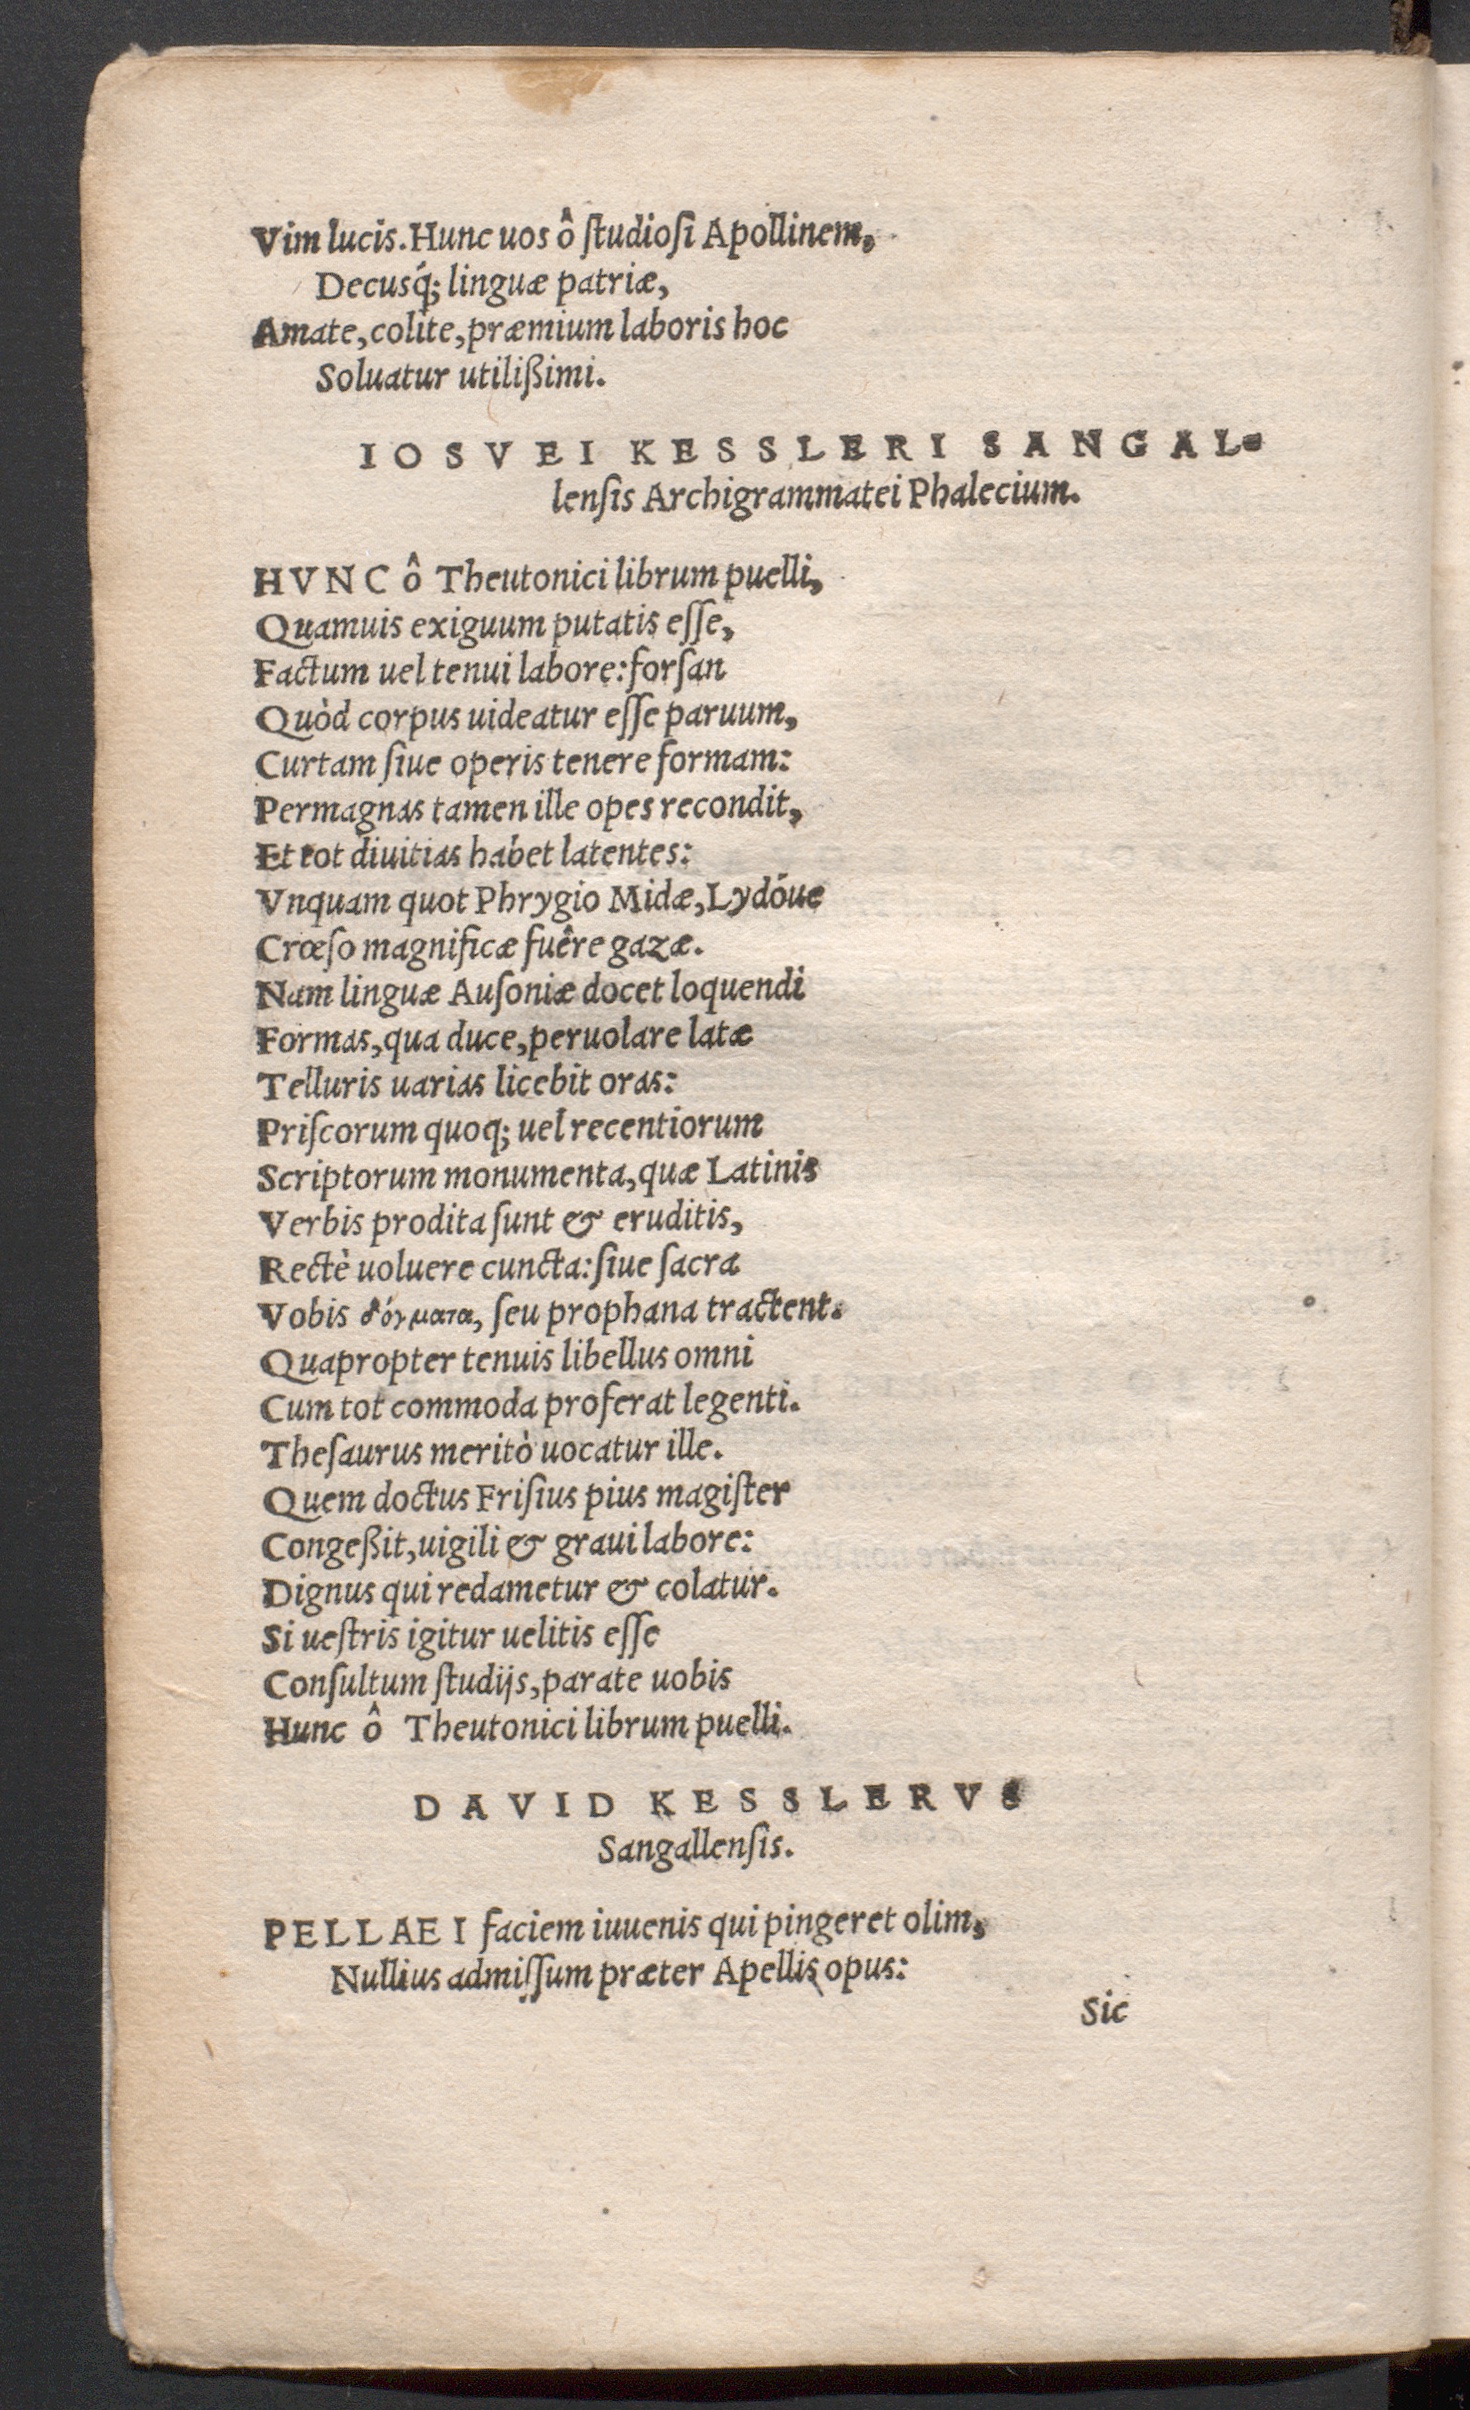 Vim lucis. Hunc uos ô ſtudioſi Apollinem,
Decusq́; linguæ patriæ,
Amate, colite, præmium laboris hoc
Soluatur utilißimi.
IOSVEI KESSLERI SANGAL-
lenſis Archigrammatei Phalecium.
HVNC ô Theutonici librum puelli,
Quamuis exiguum putatis eſſe,
Factum uel tenui labore: forſan
Quòd corpus uideatur eſſe paruum,
Curtam ſiue operis tenere formam:
Permagnas tamen ille opes recondit,
Et tot diuitias habet latentes:
Vnquam quot Phrygio Midæ, Lydóue
Crœſo magnificæ fuêre gazæ.
Nam linguæ Auſoniæ docet loquendi
Formas, qua duce, peruolare latæ
Telluris uarias licebit oras:
Priſcorum quoq; uel recentiorum
Scriptorum monumenta, quæ Latinis
Verbis prodita ſunt & eruditis,
Rectè uoluere cuncta: ſiue ſacra
Vobis δόγματα, ſeu prophana tractent.
Quapropter tenuis libellus omni
Cum tot commoda proferat legenti.
Theſaurus meritò uocatur ille.
Quem doctus Friſius pius magiſter
Congeßit, uigili & graui labore:
Dignus qui redametur & colatur.
Si ueſtris igitur uelitis eſſe
Conſultum ſtudijs, parate uobis
Hunc ô Theutonici librum puelli.
DAVID KESSLERVS
Sangallenſis.
PELLAEI faciem iuuenis qui pingeret olim,
Nullius admiſſum præter Apellis opus:
Sic